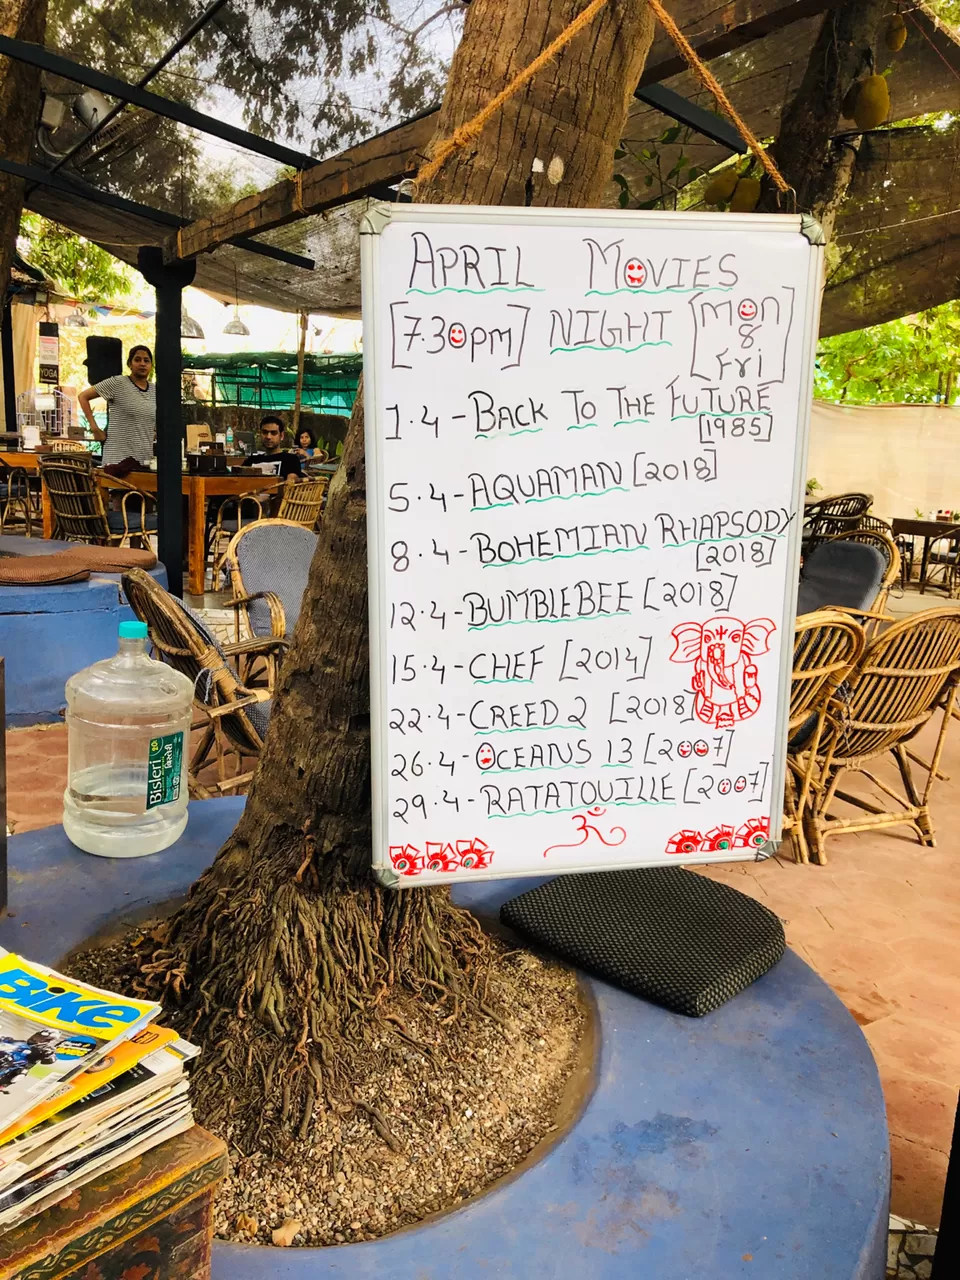 APRIL MOVIES
[7.30pm] NIGHT [Mon
&
Fri]
1.4-BACK TO THE FUTURE
[1985]
5.4-AQUAMAN [2018]
8.4-BOHEMIAN RHAPSODY
[2018]
12.4-BUMBLEBEE [2018]
15.4-CHEF [2014]
22.4-CREED 2 [2018]
26.4-OCEANS 13 [2007]
29.4-RATATOUILLE [2007]
ॐ
Bisleri
YOGA
BiKE